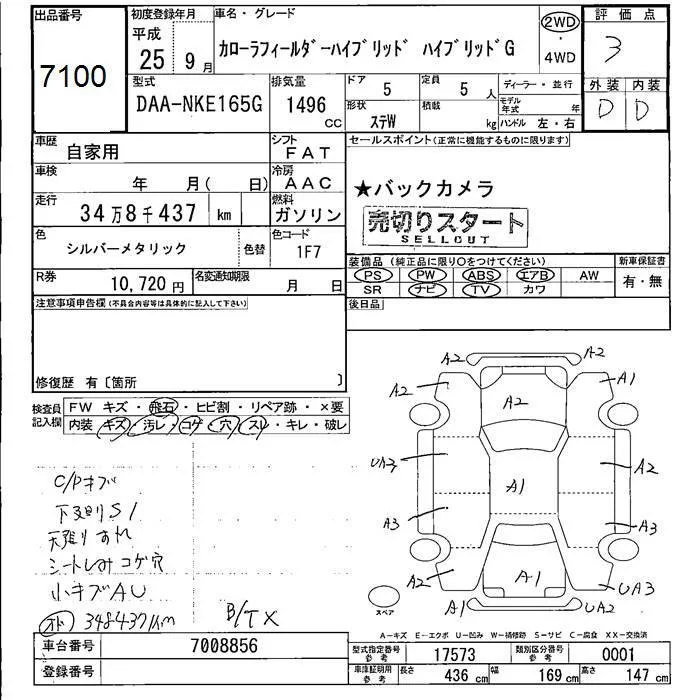 出品番号
7100
初度登録年月
平成
25年 9月
車名・グレード
カローラフィールダーハイブリッド ハイブリッドG
2WD
・
4WD
評価点
3
外装 内装
D D
型式
DAA-NKE165G
排気量
1496
CC
ドア
5
定員
5人
形状
ステW
積載
kg
ディーラー・並行
モデル年式 年
ハンドル 左・右
車歴
自家用
シフト
FAT
車検
年 月( 日)
冷房
AAC
走行
34万8千437 km
燃料
ガソリン
色
シルバーメタリック
色替
色コード
1F7
R券
10,720円
名変通知期限
月 日
セールスポイント(正常に機能するものに限ります)
★バックカメラ
売切りスタート
SELLOUT
装備品 (純正品に限り○をつけてください)
PS PW ABS エアB AW
SR ナビ TV カワ
新車保証書
有・無
後日品
注意事項申告欄(不具合内容等は具体的に記入して下さい)
修復歴 有〔箇所 〕
検査員
記入欄
FW キズ・飛石・ヒビ割・リペア跡・×要
内装 キズ・汚レ・コゲ・穴・スレ・キレ・破レ
C/Pキズ
下廻りS1
天張り
シート コゲ穴
小キズAU
348437km
B/TX
A2 A2
A2 A2 A1
UA3 A1 A2
A3 A3
A2 A1 UA3
A1 UA2
スペア
A-キズ E-エクボ U-凹み W-補修跡 S-サビ C-腐食 XX-交換済
車台番号
7008856
登録番号
型式指定番号
参考
17573
類別区分番号
参考
0001
車庫証明用
参考
長さ
436 cm
幅
169 cm
高さ
147 cm